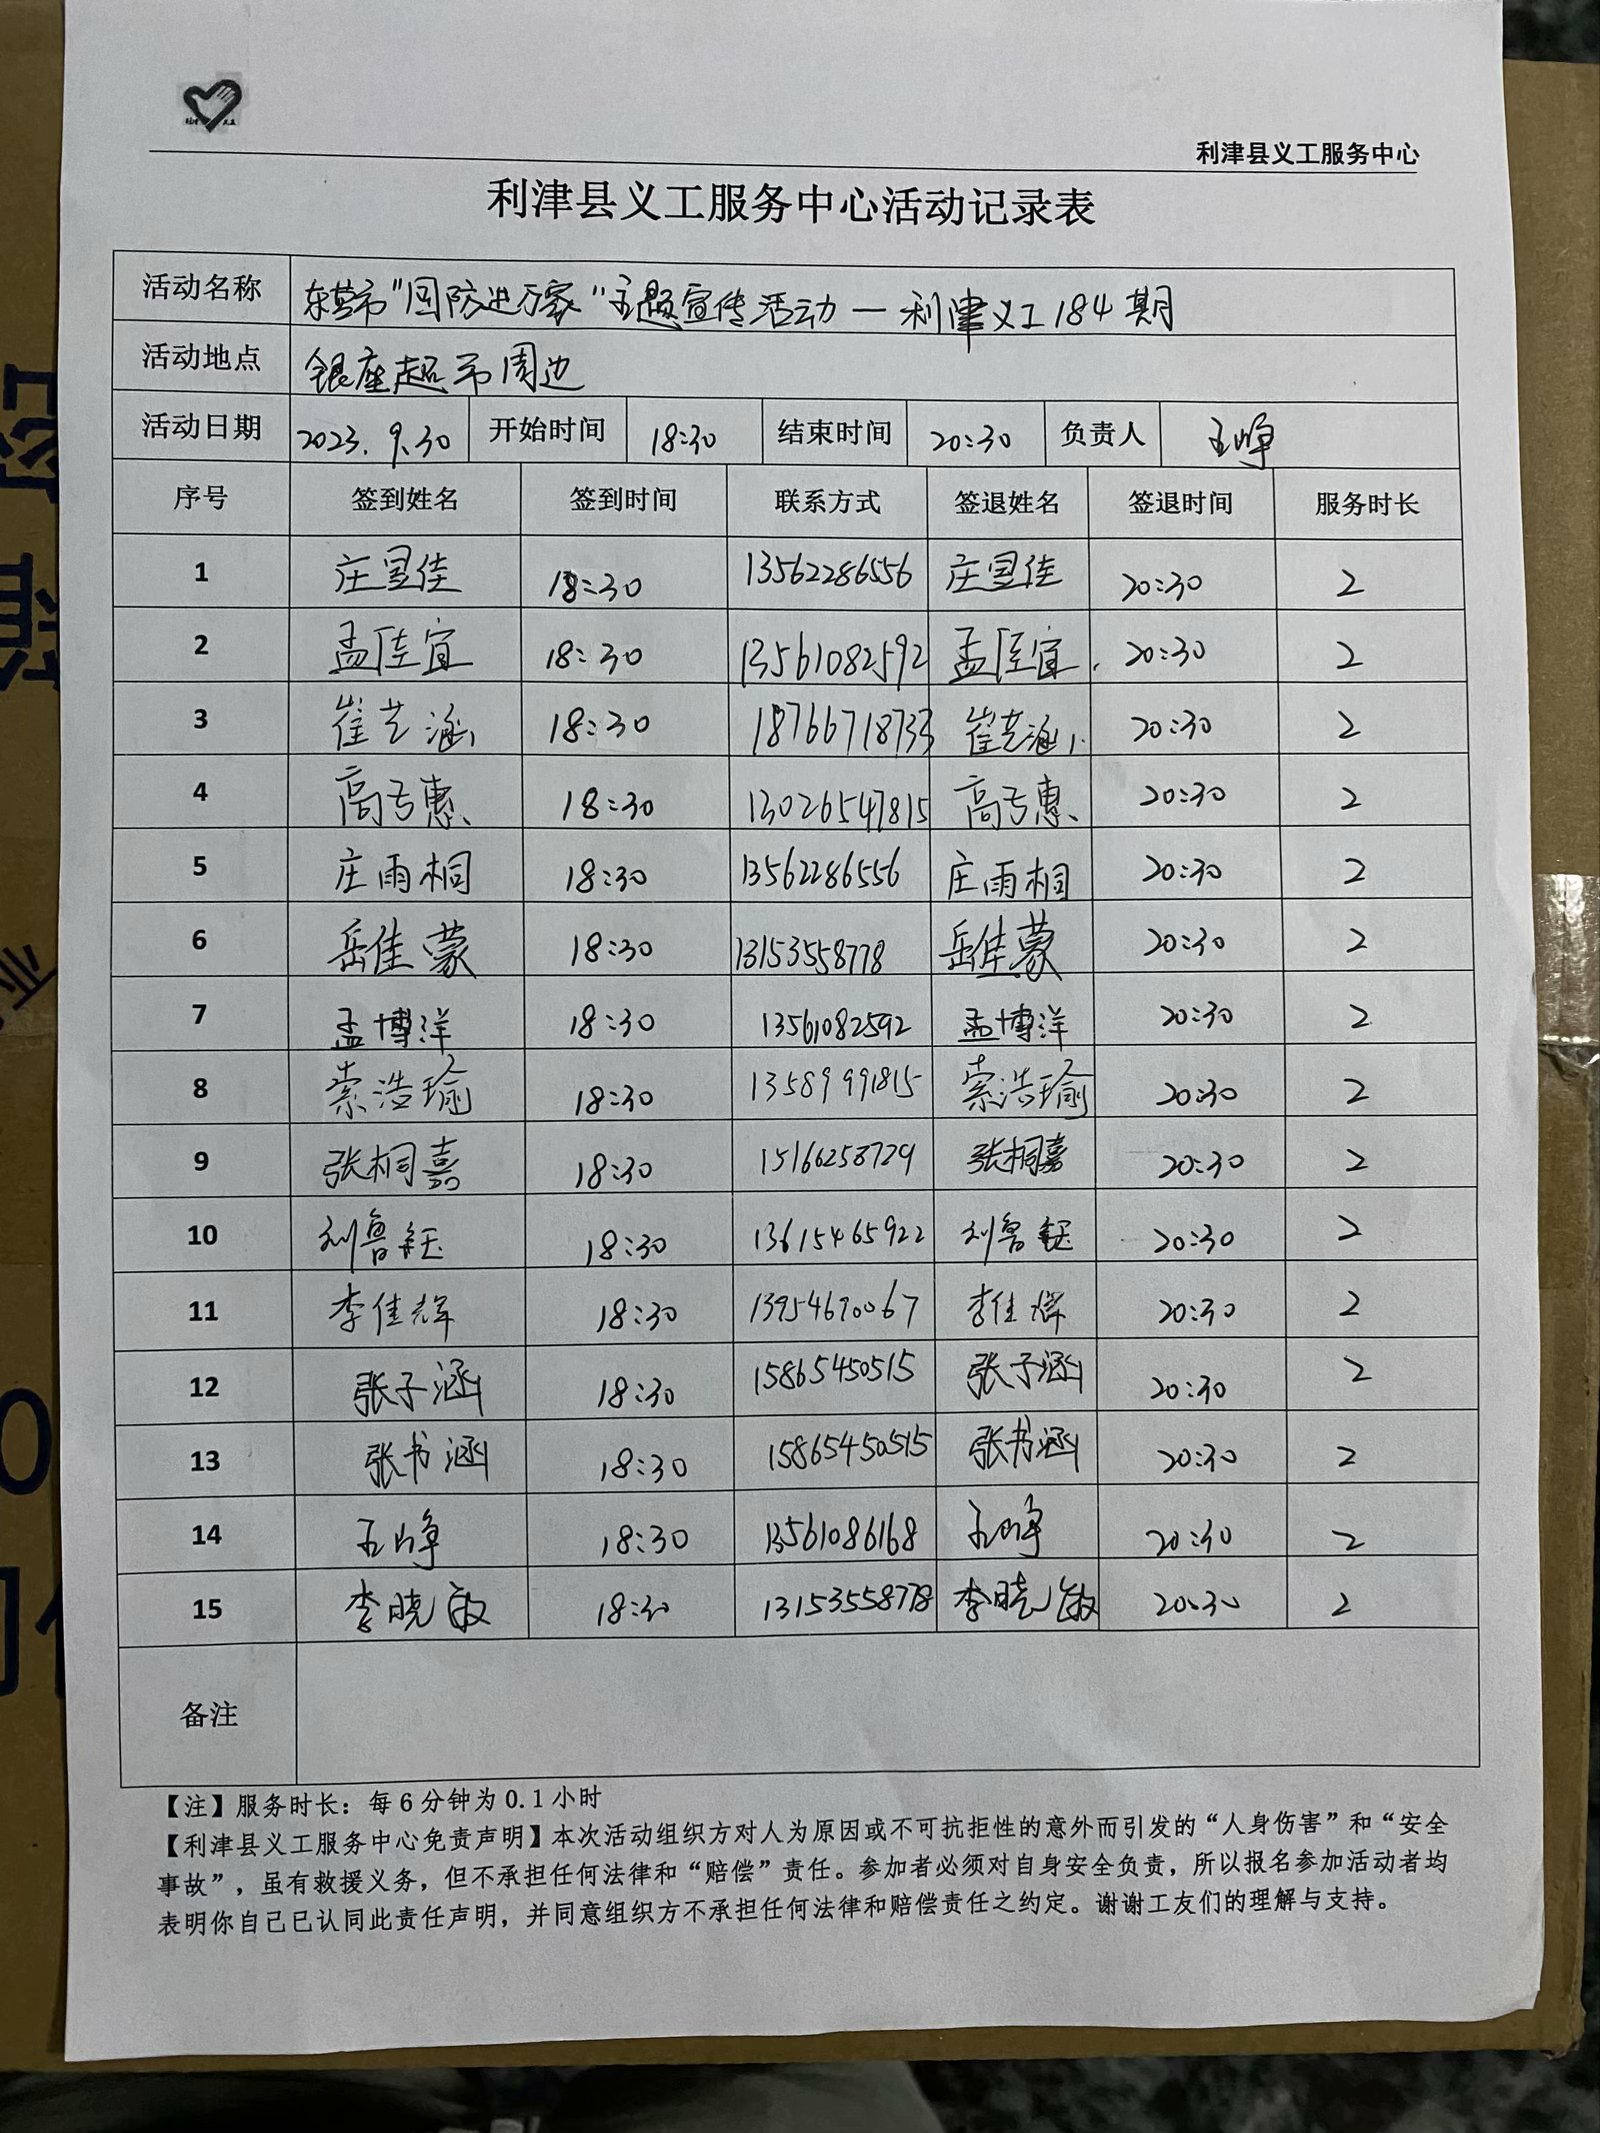 利津县义工服务中心
利津县义工服务中心活动记录表
活动名称 东营市"国防进万家"主题宣传活动—利津义工184期
活动地点 银座超市周边
活动日期 2023.9.30 开始时间 18:30 结束时间 20:30 负责人 王峥
序号 签到姓名 签到时间 联系方式 签退姓名 签退时间 服务时长
1 庄宜佳 18:30 13562286556 庄宜佳 20:30 2
2 孟佳宜 18:30 13561082592 孟佳宜 20:30 2
3 崔艺涵 18:30 18766718733 崔艺涵 20:30 2
4 高亏惠 18:30 13026547815 高亏惠 20:30 2
5 庄雨桐 18:30 13562286556 庄雨桐 20:30 2
6 岳佳蒙 18:30 13153558778 岳佳蒙 20:30 2
7 孟博洋 18:30 13561082592 孟博洋 20:30 2
8 索浩瑜 18:30 13589991815 索浩瑜 20:30 2
9 张桐嘉 18:30 15166258729 张桐嘉 20:30 2
10 刘鲁钰 18:30 13615465922 刘鲁钰 20:30 2
11 李佳辉 18:30 13954690067 李佳辉 20:30 2
12 张子涵 18:30 15865450515 张子涵 20:30 2
13 张书涵 18:30 15865450515 张书涵 20:30 2
14 王峥 18:30 13561086168 王峥 20:30 2
15 李晓敏 18:30 13153558778 李晓敏 20:30 2
备注
【注】服务时长：每6分钟为0.1小时
【利津县义工服务中心免责声明】本次活动组织方对人为原因或不可抗拒性的意外而引发的“人身伤害”和“安全
事故”，虽有救援义务，但不承担任何法律和“赔偿”责任。参加者必须对自身安全负责，所以报名参加活动者均
表明你自己已认同此责任声明，并同意组织方不承担任何法律和赔偿责任之约定。谢谢工友们的理解与支持。